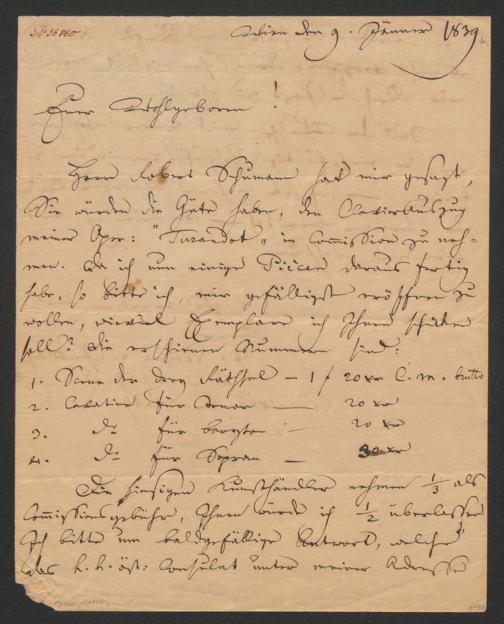 Wien den 9. Jänner 1839
Euer Wohlgeboren!
Herr Robert Schumann hat mir gesagt,
Sie würden die Güte haben, den Clavierauszug
meiner Oper: "Turandot" in Commission zu neh-
men. Da ich nun einige Piècen daraus fertig
habe, so bitte ich, mir gefälligst eröffnen zu
wollen, wieviel Exemplare ich Ihnen schicken
soll? Die erschienen Nummern sind:
1. Scene der drey Räthsel — 1 f 20 xr C. m. btto
2. Cavatine für Tenor — 20 xr
3. do für Baryton 20 xr
4. do für Sopran — 30 xr
Die hiesigen Kunsthändler nehmen 1/3 als
Commissionsgebühr, Ihnen würde ich 1/2 überlassen
Ich bitte um baldgefällige Antwort, welche
das k. k. öst: Consulat unter meiner Adresse